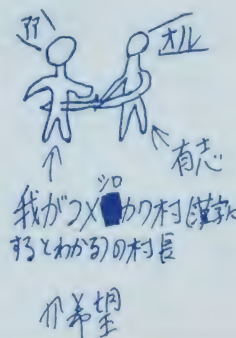 オル
有志
シロ
我がコメカワ村(漢字に
するとわかる)の村長
希望